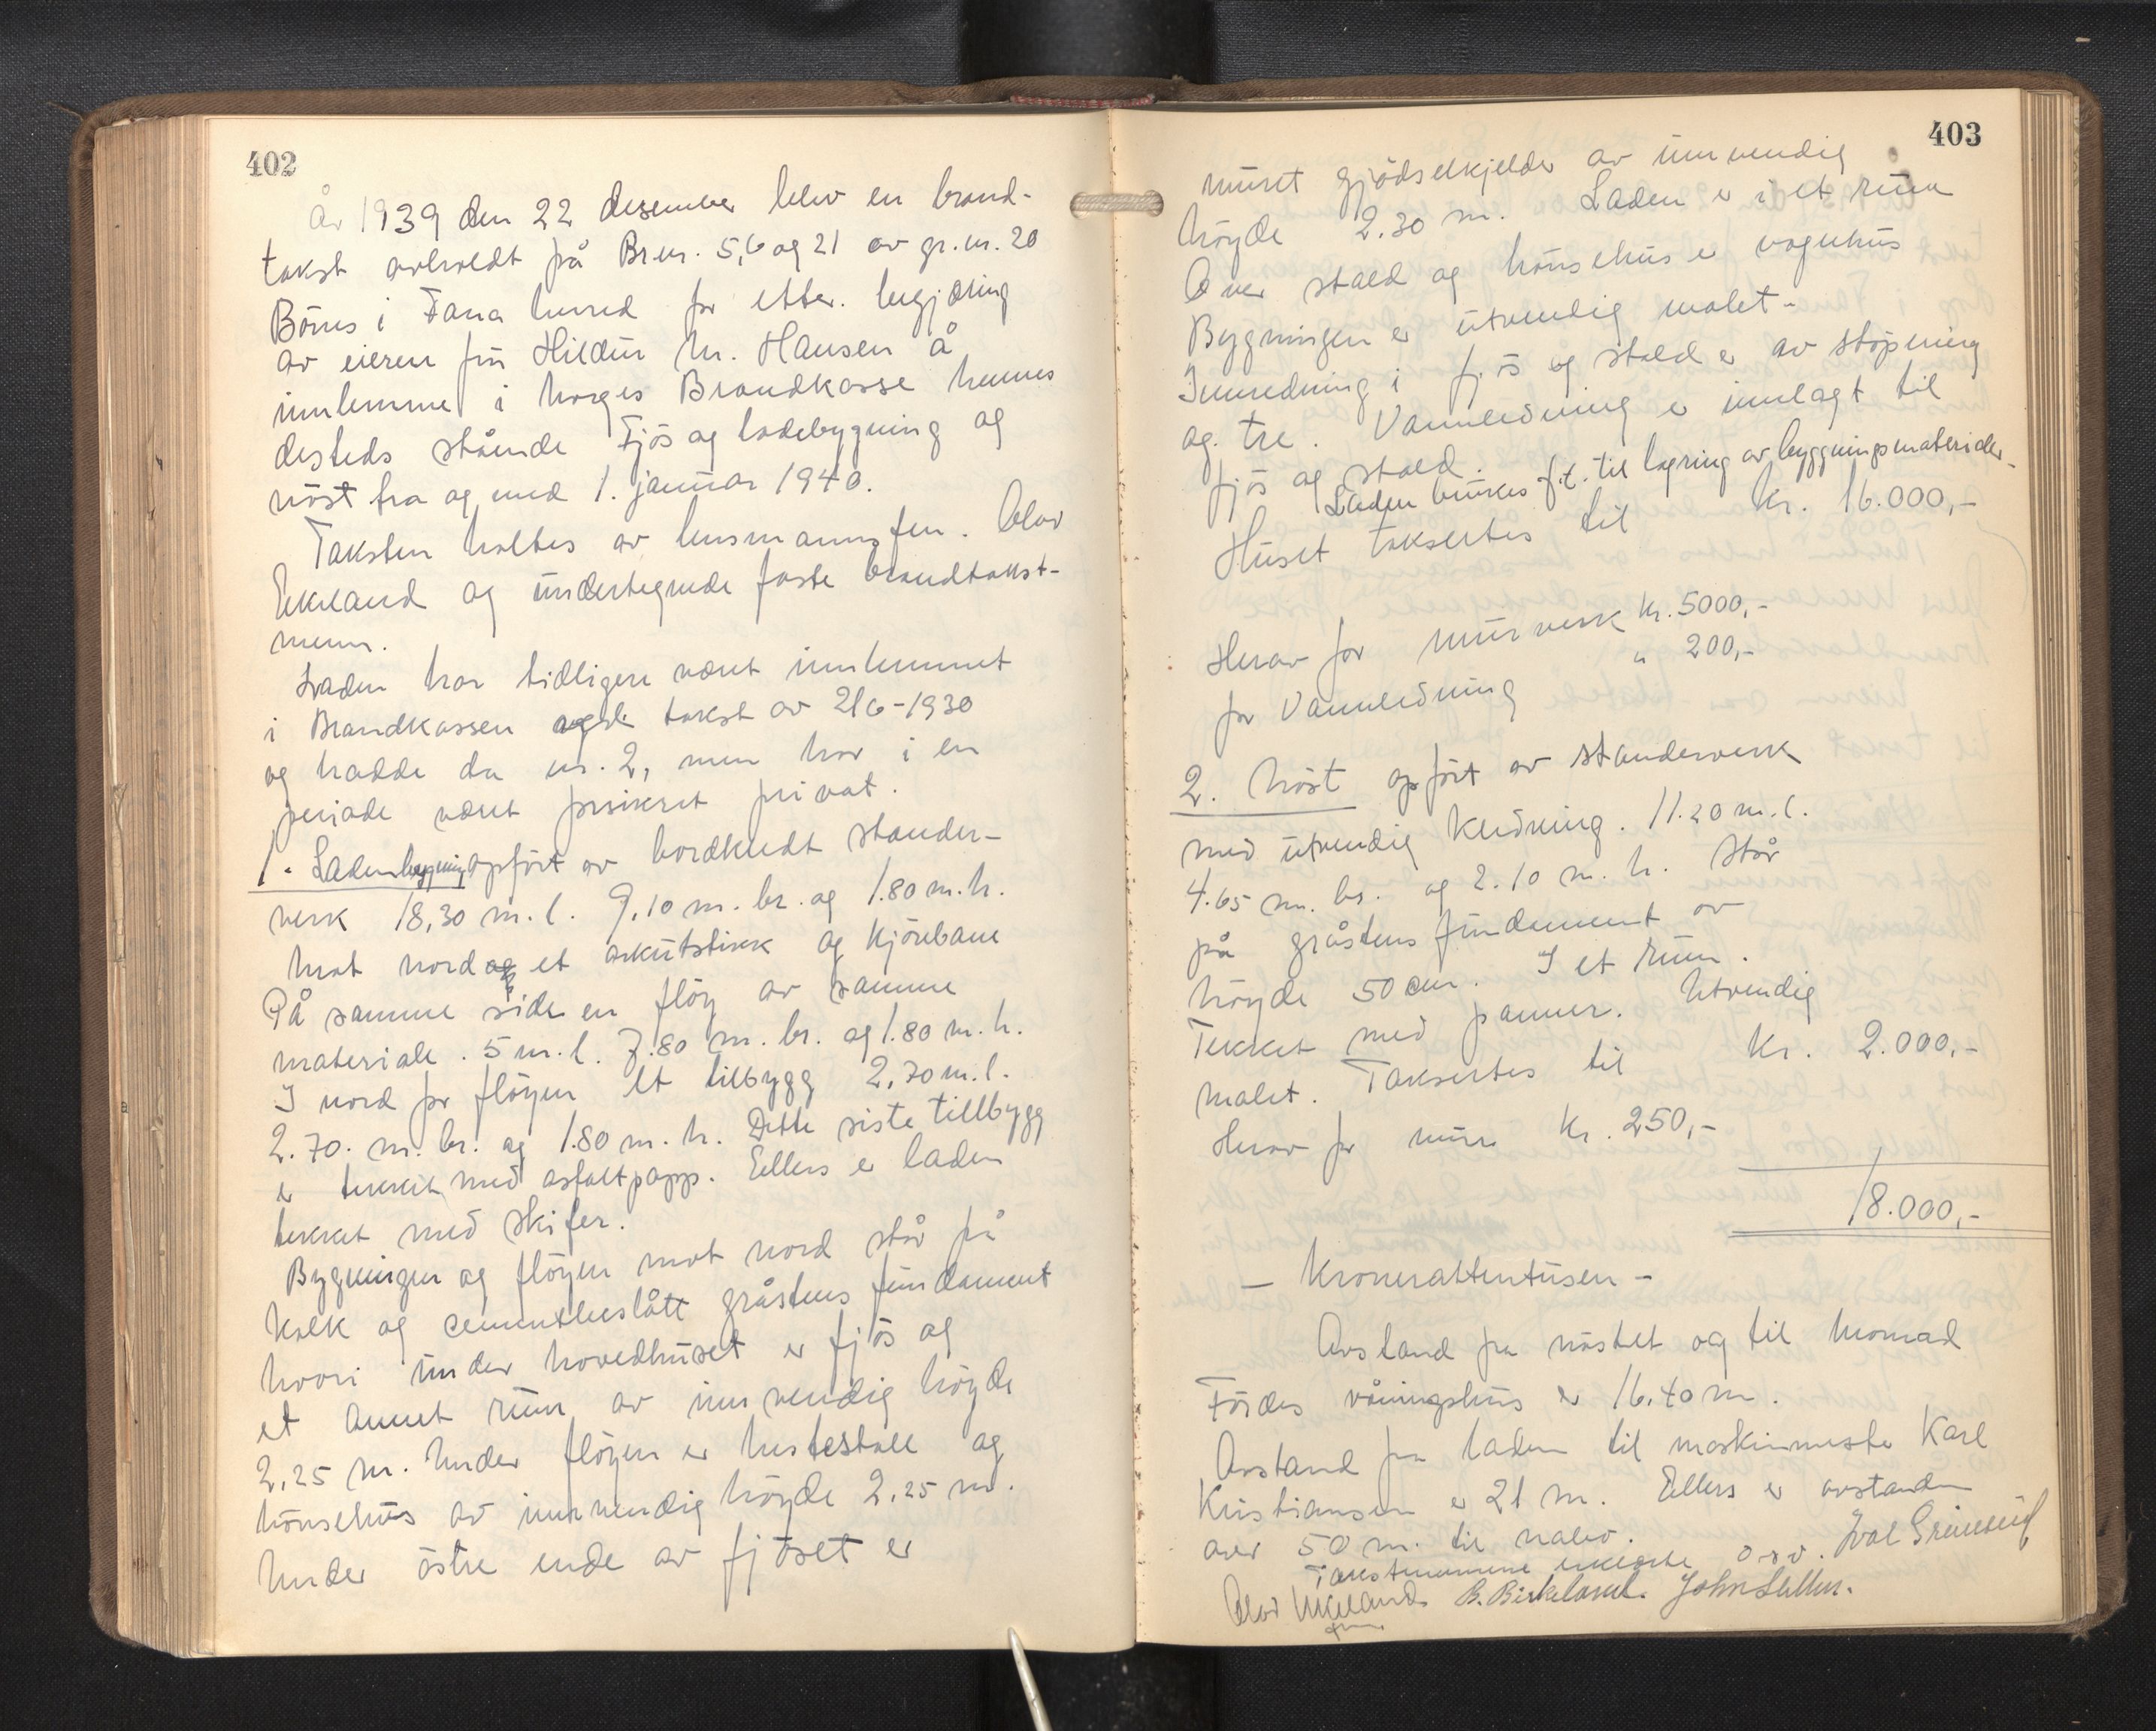 402
År 1939 den 22 desember blev en brand-
takst avholdt på Br.nr. 5,6 og 21 av gr.nr. 20
Bönes i Fana herred for etter begjæring
av eieren fru Hildur M. Hansen å
innlemme i Norges Brandkasse hennes
desteds stående Fjös og ladebygning og
nöst fra og med 1. januar 1940.
Taksten holtes av lensmannsfm. Olav
Ekeland og undertegnede faste brandtakst-
menn.
Laden har tidligere været innlemmet
i Brandkassen takst av 21/6-1930
og hadde da nr. 2, men har i en
periode været forsikret privat.
1. Ladenbygning opfört av bordkledt stander-
verk 18,30 m.l. 9,10 m.br. og 1.80 m.h.
Mot nord og et arkutstikk og kjörebane
På samme side en flöy av samme
materiale. 5 m.l. 7.80 m.br. og 1.80 m.h.
I nord for flöyen et tilbygg 2,70 m.l.
2.70. m.br. og 1.80 m.h. Dette siste tillbygg
er tekket med asfaltpapp. Ellers er laden
tekket med skifer.
Bygningen og flöyen mot nord står på
kalk og cementbeslått gråstens fundament
hvori under hovedhuset er fjös og
et annet rum av innvendig höyde
2,25 m. Under flöyen er hestestall og
hönsehus av innvendig höyde 2,25 m.
Under östre ende av fjöset er
403
muret gjödselkjelder av innvendig
höyde 2.30 m. Laden er i et rum
Over stald og hönsehus er vognhus
Bygningen er utvendig malet.
Innredning i fjös og stald er av stöpning
og tre. Vannledning er innlagt til
fjös og stald.
Laden brukes f.t. til lagring av byggningsmaterialer.
Huset taksertes til kr. 16.000,-
Herav for murverk kr. 5000,-
for Vannledning " 200,-
2. Nöst opfört av standerverk
med utvendig kledning. 11.20 m.l.
4.65 m. br. og 2.10 m. h. Står
på gråstens fundament av
höyde 50 cm. I et rum.
Tekket med panner. Utvendig
malet. Taksertes til kr. 2.000,-
Herav for mur kr. 250,-
18.000,-
- Kronerattentusen -
Avstand fra nöstet og til
Fördes våningshus er 16.40 m.
Avstand fra laden til maskinmester Karl
Kristiansen er 21 m. Ellers er avstanden
over 50 m. til nabo.
Takstmennene erklærte o.s.v. Ivar Grimseid
Olav Ekeland B. Birkeland. John
fm.